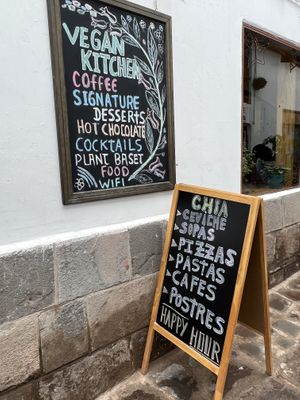 VEGAN
KITCHEN
COFFEE
SIGNATURE
DESSERTS
HOT CHOCOLATE
COCKTAILS
PLANT BASET
FOOD
WIFI
CHIA
> CEVICHE
> SOPAS
> PIZZAS
> PASTAS
> CAFES
> POSTRES
HAPPY HOUR